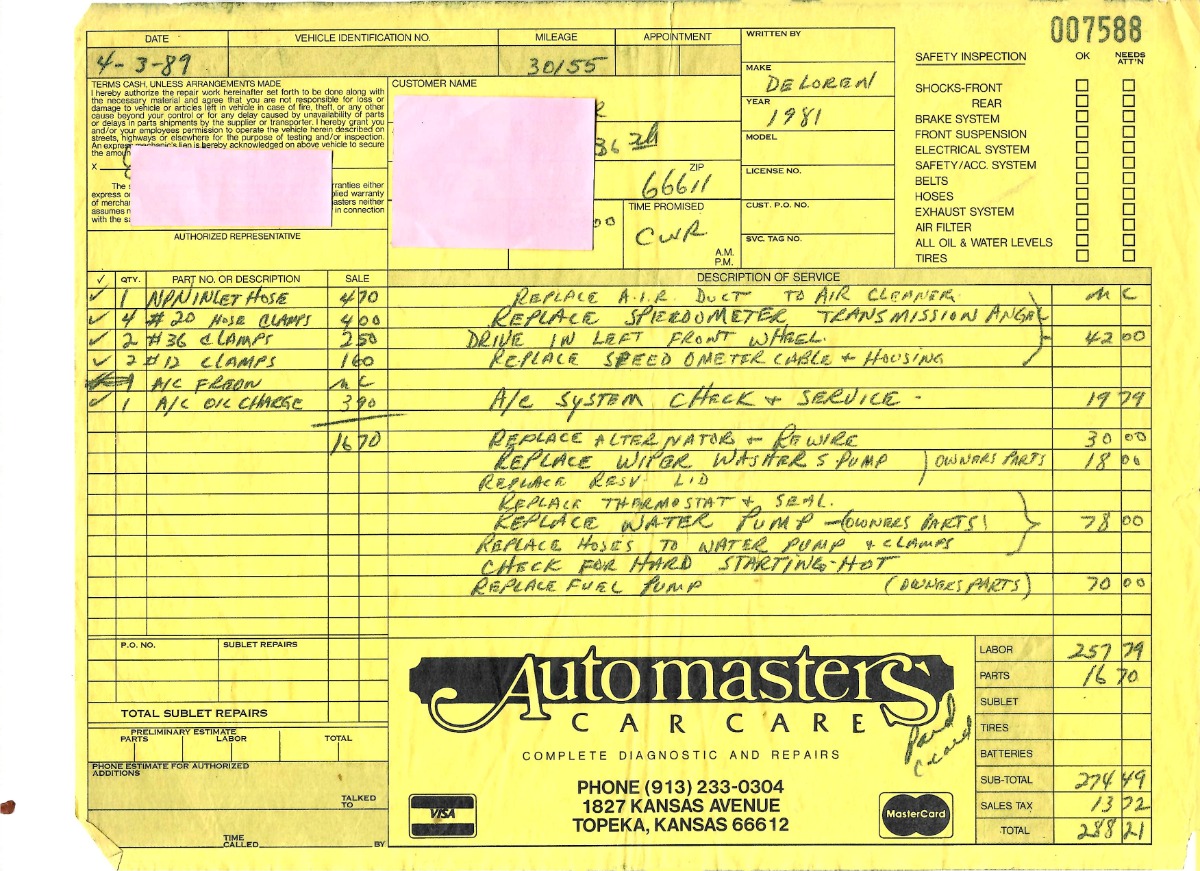 007588
DATE
4-3-89
VEHICLE IDENTIFICATION NO.
MILEAGE
30155
APPOINTMENT
WRITTEN BY
TERMS CASH, UNLESS ARRANGEMENTS MADE
I hereby authorize the repair work hereinafter set forth to be done along with
the necessary material and agree that you are not responsible for loss or
damage to vehicle or articles left in vehicle in case of fire, theft, or any other
cause beyond your control or for any delay caused by unavailability of parts
or delays in parts shipments by the supplier or transporter. I hereby grant you
and/or your employees permission to operate the vehicle herein described on
streets, highways or elsewhere for the purpose of testing and/or inspection.
An express mechanic's lien is hereby acknowledged on above vehicle to secure
the amoun
X
The s rranties either
express o plied warranty
of mercha asters neither
assumes in connection
with the sa
AUTHORIZED REPRESENTATIVE
CUSTOMER NAME
36 th
ZIP
66611
00
TIME PROMISED
CWR
A.M.
P.M.
MAKE
DELOREN
YEAR
1981
MODEL
LICENSE NO.
CUST. P.O. NO.
SVC. TAG NO.
SAFETY INSPECTION OK NEEDS ATT'N
SHOCKS-FRONT
REAR
BRAKE SYSTEM
FRONT SUSPENSION
ELECTRICAL SYSTEM
SAFETY/ACC. SYSTEM
BELTS
HOSES
EXHAUST SYSTEM
AIR FILTER
ALL OIL & WATER LEVELS
TIRES
✓ QTY. PART NO. OR DESCRIPTION SALE
✓ 1 NPN INLET HOSE 4 70
✓ 4 #20 HOSE CLAMPS 4 00
✓ 2 #36 CLAMPS 2 50
✓ 2 #12 CLAMPS 1 60
1 A/C FREON N C
✓ 1 A/C OIL CHARGE 3 90
16 70
DESCRIPTION OF SERVICE
REPLACE A.I.R. DUCT TO AIR CLEANER N C
REPLACE SPEEDOMETER TRANSMISSION ANGEL
DRIVE IN LEFT FRONT WHEEL. 42 00
REPLACE SPEEDOMETER CABLE & HOUSING
A/C SYSTEM CHECK & SERVICE - 19 79
REPLACE ALTERNATOR & REWIRE 30 00
REPLACE WIPER WASHERS PUMP ) OWNERS PARTS 18 00
REPLACE RESV. LID
REPLACE THERMOSTAT & SEAL.
REPLACE WATER PUMP - (OWNERS PARTS) 78 00
REPLACE HOSES TO WATER PUMP & CLAMPS
CHECK FOR HARD STARTING-HOT
REPLACE FUEL PUMP (OWNERS PARTS) 70 00
P.O. NO. SUBLET REPAIRS
TOTAL SUBLET REPAIRS
PRELIMINARY ESTIMATE
PARTS LABOR TOTAL
PHONE ESTIMATE FOR AUTHORIZED
ADDITIONS
TALKED
TO
TIME
CALLED BY
Automasters
CAR CARE
COMPLETE DIAGNOSTIC AND REPAIRS
PHONE (913) 233-0304
1827 KANSAS AVENUE
TOPEKA, KANSAS 66612
VISA
MasterCard
Paid
LABOR 257 79
PARTS 16 70
SUBLET
TIRES
BATTERIES
SUB-TOTAL 274 49
SALES TAX 13 72
TOTAL 288 21